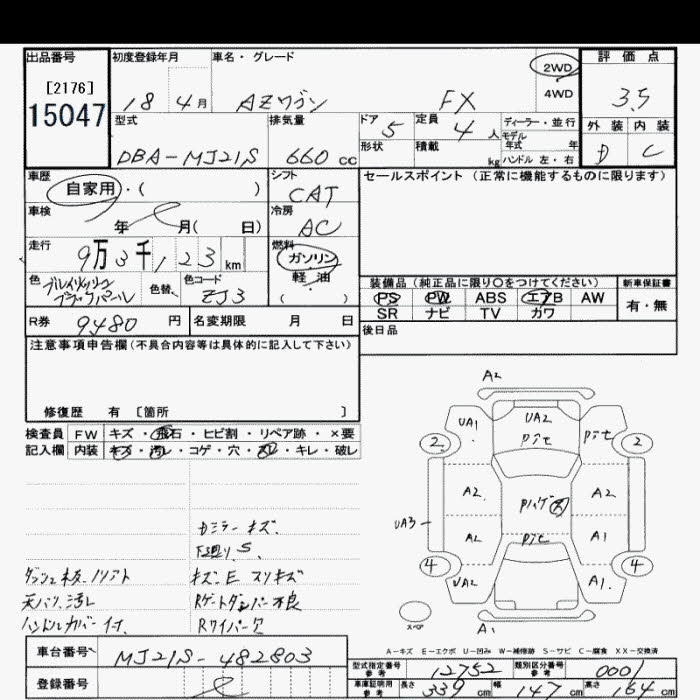 出品番号
[2176]
15047
初度登録年月
18 4月
車名・グレード
AZワゴン FX
2WD
4WD
評価点
3.5
外装 内装
D C
型式
DBA-MJ21S
排気量
660 cc
ドア 5
定員 4人
形状
積載 kg
ディーラー・並行
モデル
年式 年
ハンドル 左・右
車歴
自家用・( )
シフト
CAT
セールスポイント (正常に機能するものに限ります)
車検
年 月( 日)
冷房
AC
走行
9万3千123km
燃料
ガソリン
軽油
( )
色
色替
色コード
ZJ3
装備品 (純正品に限り○をつけてください)
新車保証書
PS PW ABS エアB AW
有・無
SR ナビ TV カワ
R券 9480円
名変期限 月 日
後日品
注意事項申告欄(不具合内容等は具体的に記入して下さい)
修復歴 有 [箇所 ]
検査員
記入欄
FW キズ・飛石・ヒビ割・リペア跡・×要
内装 キズ・汚レ・コゲ・穴・スレ・キレ・破レ
カミラーキズ
下廻りS
キズ・E スリキズ
Rゲートダンパー不良
Rワイパー欠
天バリ汚レ
ハンドルカバー付
A2
UA1 UA2
2 2
A2 A2
UA3
A2 A1
4 4
UA2 A1
スペア
A1
A-キズ E-エクボ U-凹み W-補修跡 S-サビ C-腐食 XX-交換済
車台番号
MJ21S-482803
登録番号
型式指定番号
参考
12752
類別区分番号
参考
0001
車庫証明用
参考
長さ 339cm 幅 147cm 高さ 164cm